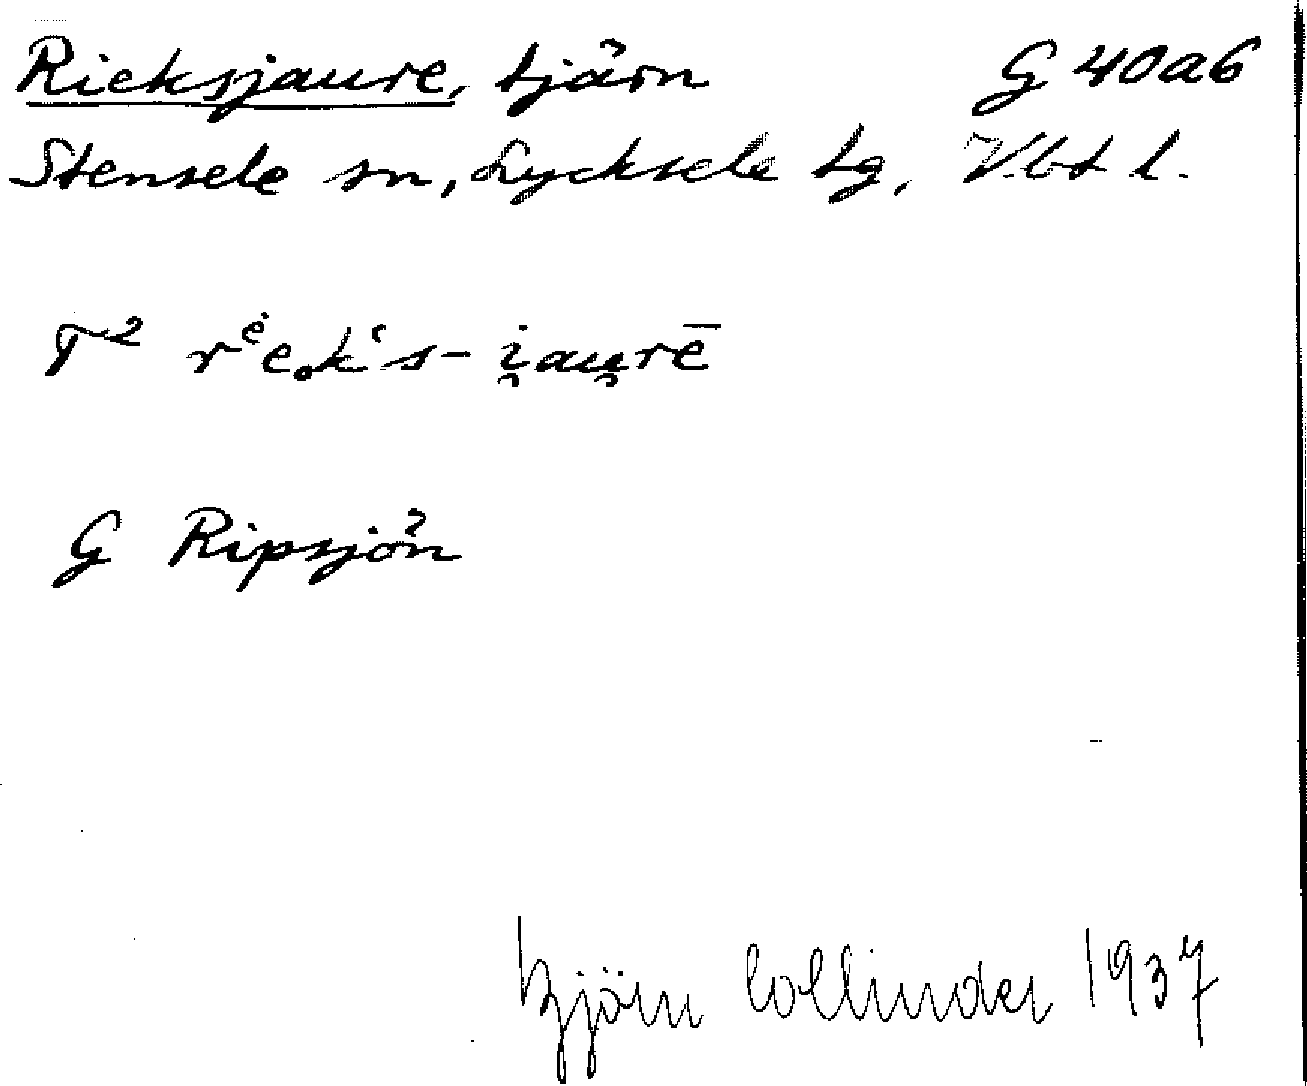 Rieksjaure, tjärn G 40a6
Stensele sn, Lycksele tg, Vbt l.
T² rᵉ̇e.k‘s-i̯au̯rē
G Ripsjön
Björn Collinder 1937